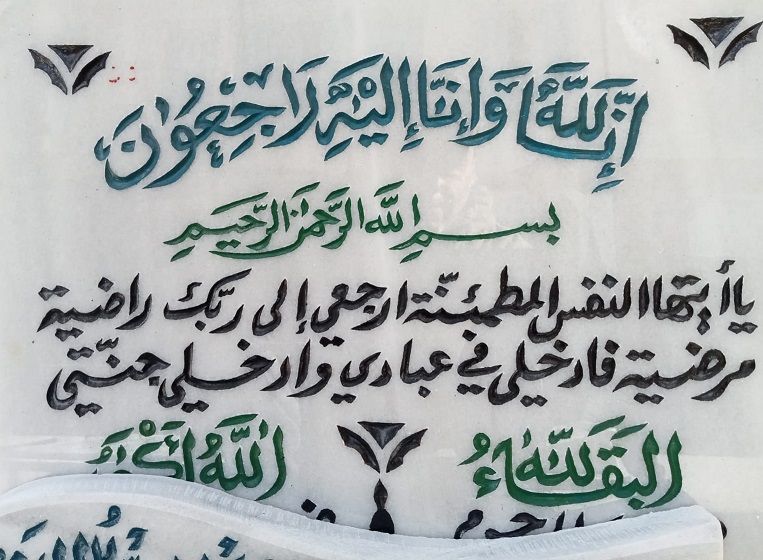 إِنَّا لِلَّهِ وَإِنَّا إِلَيْهِ رَاجِعُونَ
بسم الله الرحمن الرحيم
ياأيتها النفس المطمئنة ارجعي إلى ربك راضية
مرضية فادخلي في عبادي وادخلي جنتي
البقاء لله الله أكبر
المرحوم